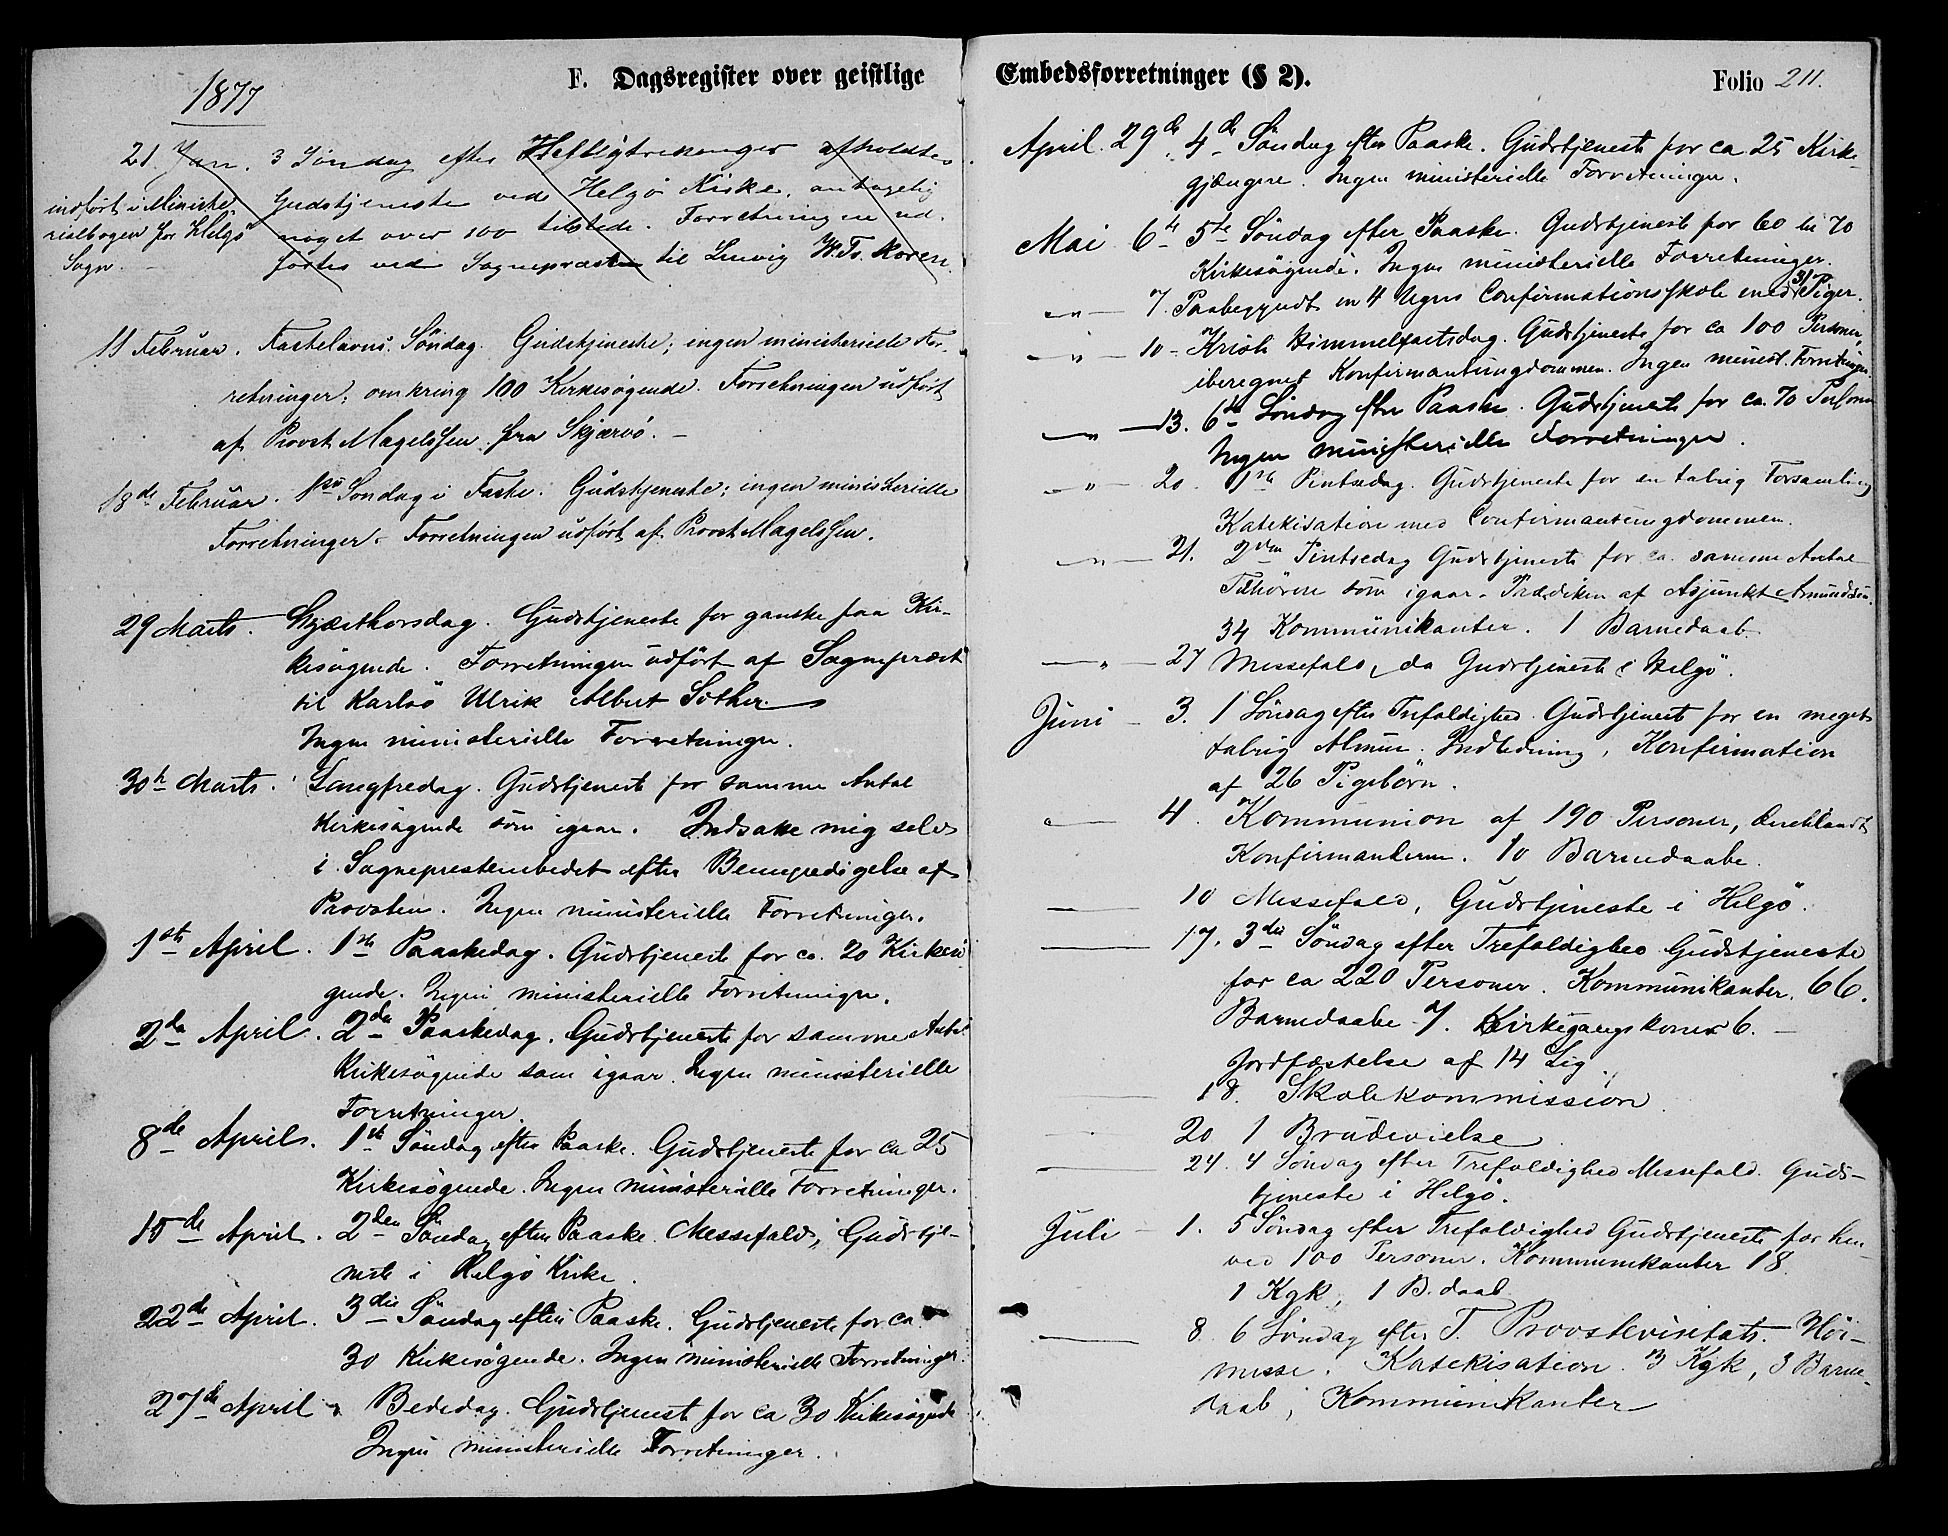 F. Dagsregister over geistlige
1877
21. Jan. 3 Söndag efter Helligtrekonger afholdtes
Gudstjeneste ved Helgö Kirke, antagelig
noget over 100 tilstede. Forretningen ud-
förtes ved Sognepræsten til Lenvig W. Fr. Koren.
indfört i Ministe-
rialbogen for Helgö
Sogn.
11 Februar. Fastelavns Söndag. Gudstjeneste; ingen ministerielle For-
retninger; omkring 100 Kirkesögende. Forretningen udfört
af Provst Magelssen fra Skjærvö. –
18de Februar. 1ste Söndag i Faste. Gudstjeneste; ingen ministerielle
Forretninger. Forretningen udfört af Provst Magelssen.
29 Marts. Skjærthorsdag. Gudstjeneste for ganske faa Kir-
kesögende. Forretningen udfört af Sognepræst
til Karlsö Ulrik Albert
Ingen ministerielle Forretninger.
30te Marts. Langfredag. Gudstjeneste for samme Antal
Kirkesögende som igaar. Indsatte mig selv
i Sognepresteembedet efter Bemyndigelse af
Provsten. Ingen ministerielle Forretninger.
1ste April. 1ste Paaskedag. Gudstjeneste for ca. 20 Kirkesö-
gende. Ingen ministerielle Forretninger.
2den April. 2den Paaskedag. Gudstjeneste for samme Antal
Kirkesögende som igaar. Ingen ministerielle
Forretninger.
8de April. 1ste Söndag efter Paaske. Gudstjeneste for ca 25
Kirkesögende. Ingen ministerielle Forretninger.
15de April. 2den Söndag efter Paaske. Messefald, Gudstje-
neste i Helgö Kirke.
22de April. 3die Söndag efter Paaske. Gudstjeneste for ca
30 Kirkesögende. Ingen ministerielle Forretninger.
27de April. Bededag. Gudstjeneste for ca 30 Kirkesögende
Ingen ministerielle Forretninger.
Embedsforretninger (§ 2).
Folio 211.
April. 29de 4de Söndag efter Paaske. Gudstjeneste for ca 25 Kirke-
gjængere. Ingen ministerielle Forretninger.
Mai 6te 5te Söndag efter Paaske. Gudstjeneste for 60 til 70
Kirkesögende. Ingen ministerielle Forretninger.
—"— 7. Paabegyndt en 4 Ugers Confirmationsskole med 31 Piger.
—"— 10 – Kristi Himmelfartsdag. Gudstjeneste for ca 100 Personer,
iberegnet Konfirmantungdommen. Ingen minist. Forretninger.
—"— 13. 6te Söndag efter Paaske. Gudstjeneste for ca. 70 Personer
Ingen ministerielle Forretninger.
—"— 20. 1ste Pintsedag. Gudstjeneste for en talrig Forsamling
Katekisation med Confirmantungdommen.
—"— 21. 2den Pintsedag Gudstjeneste for ca. samme Antal
Tilhörere som igaar. Prædiken af Adjunkt Amundsen.
34 Kommunikanter. 1 Barnedaab
—"— 27 Messefald, da Gudstjeneste i Helgö.
Juni – 3. 1 Söndag efter Trefoldighed. Gudstjeneste for en meget
talrig Almue. Indledning, Konfirmation
af 26 Pigebörn.
—— 4. Kommunion af 190 Personer, deriblandt
Konfirmanterne. 10 Barnedaabe.
—— 10 Messefald, Gudstjeneste i Helgö.
—— 17. 3die Söndag efter Trefoldighed Gudstjeneste
for ca 220 Personer. Kommunikanter 66.
Barnedaabe 7. Kirkegangskoner 6. –
Jordfæstelse af 14 Lig.
—— 18. Skolekommission
—— 20 1 Brudevielse
—— 24. 4 Söndag efter Trefoldighed Messefald. Guds-
tjeneste i Helgö.
Juli – 1. 5 Söndag efter Trefoldighed Gudstjeneste for hen-
ved 100 Personer. Kommunikanter 18.
1 Kgk, 1 B.daab
—— 8. 6 Söndag efter T. Provstevisitats. Höi-
messe. Katekisation. 3 Kgk, 3 Barne-
daab, Kommunikanter